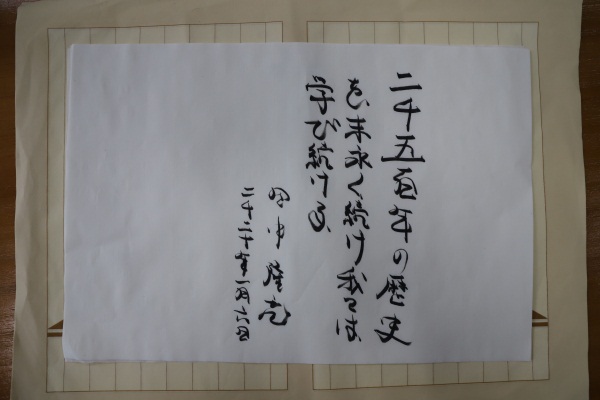 二千五百年の歴史
を末永く続け我々は
学び続ける
田中隆志
二千二十年一月六日